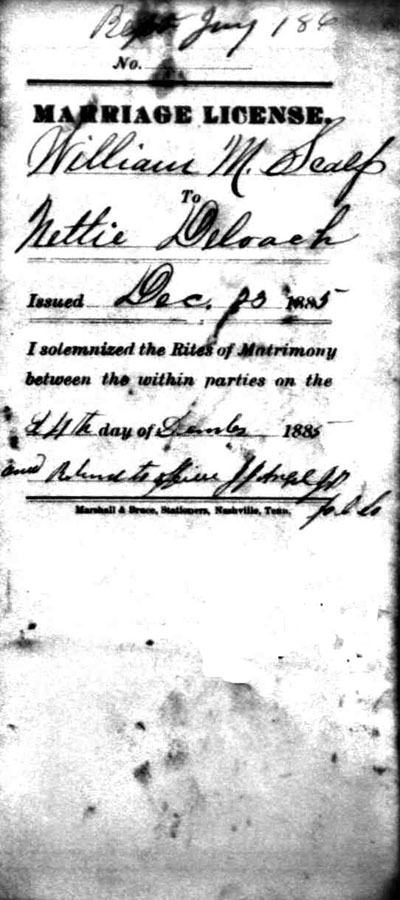 Jany 188
No.
MARRIAGE LICENSE.
William M. Scalf
To
Nettie Deloach
Issued Dec. 23 1885
I solemnized the Rites of Matrimony
between the within parties on the
24th day of 1885
and
Marshall & Bruce, Stationers, Nashville, Tenn.